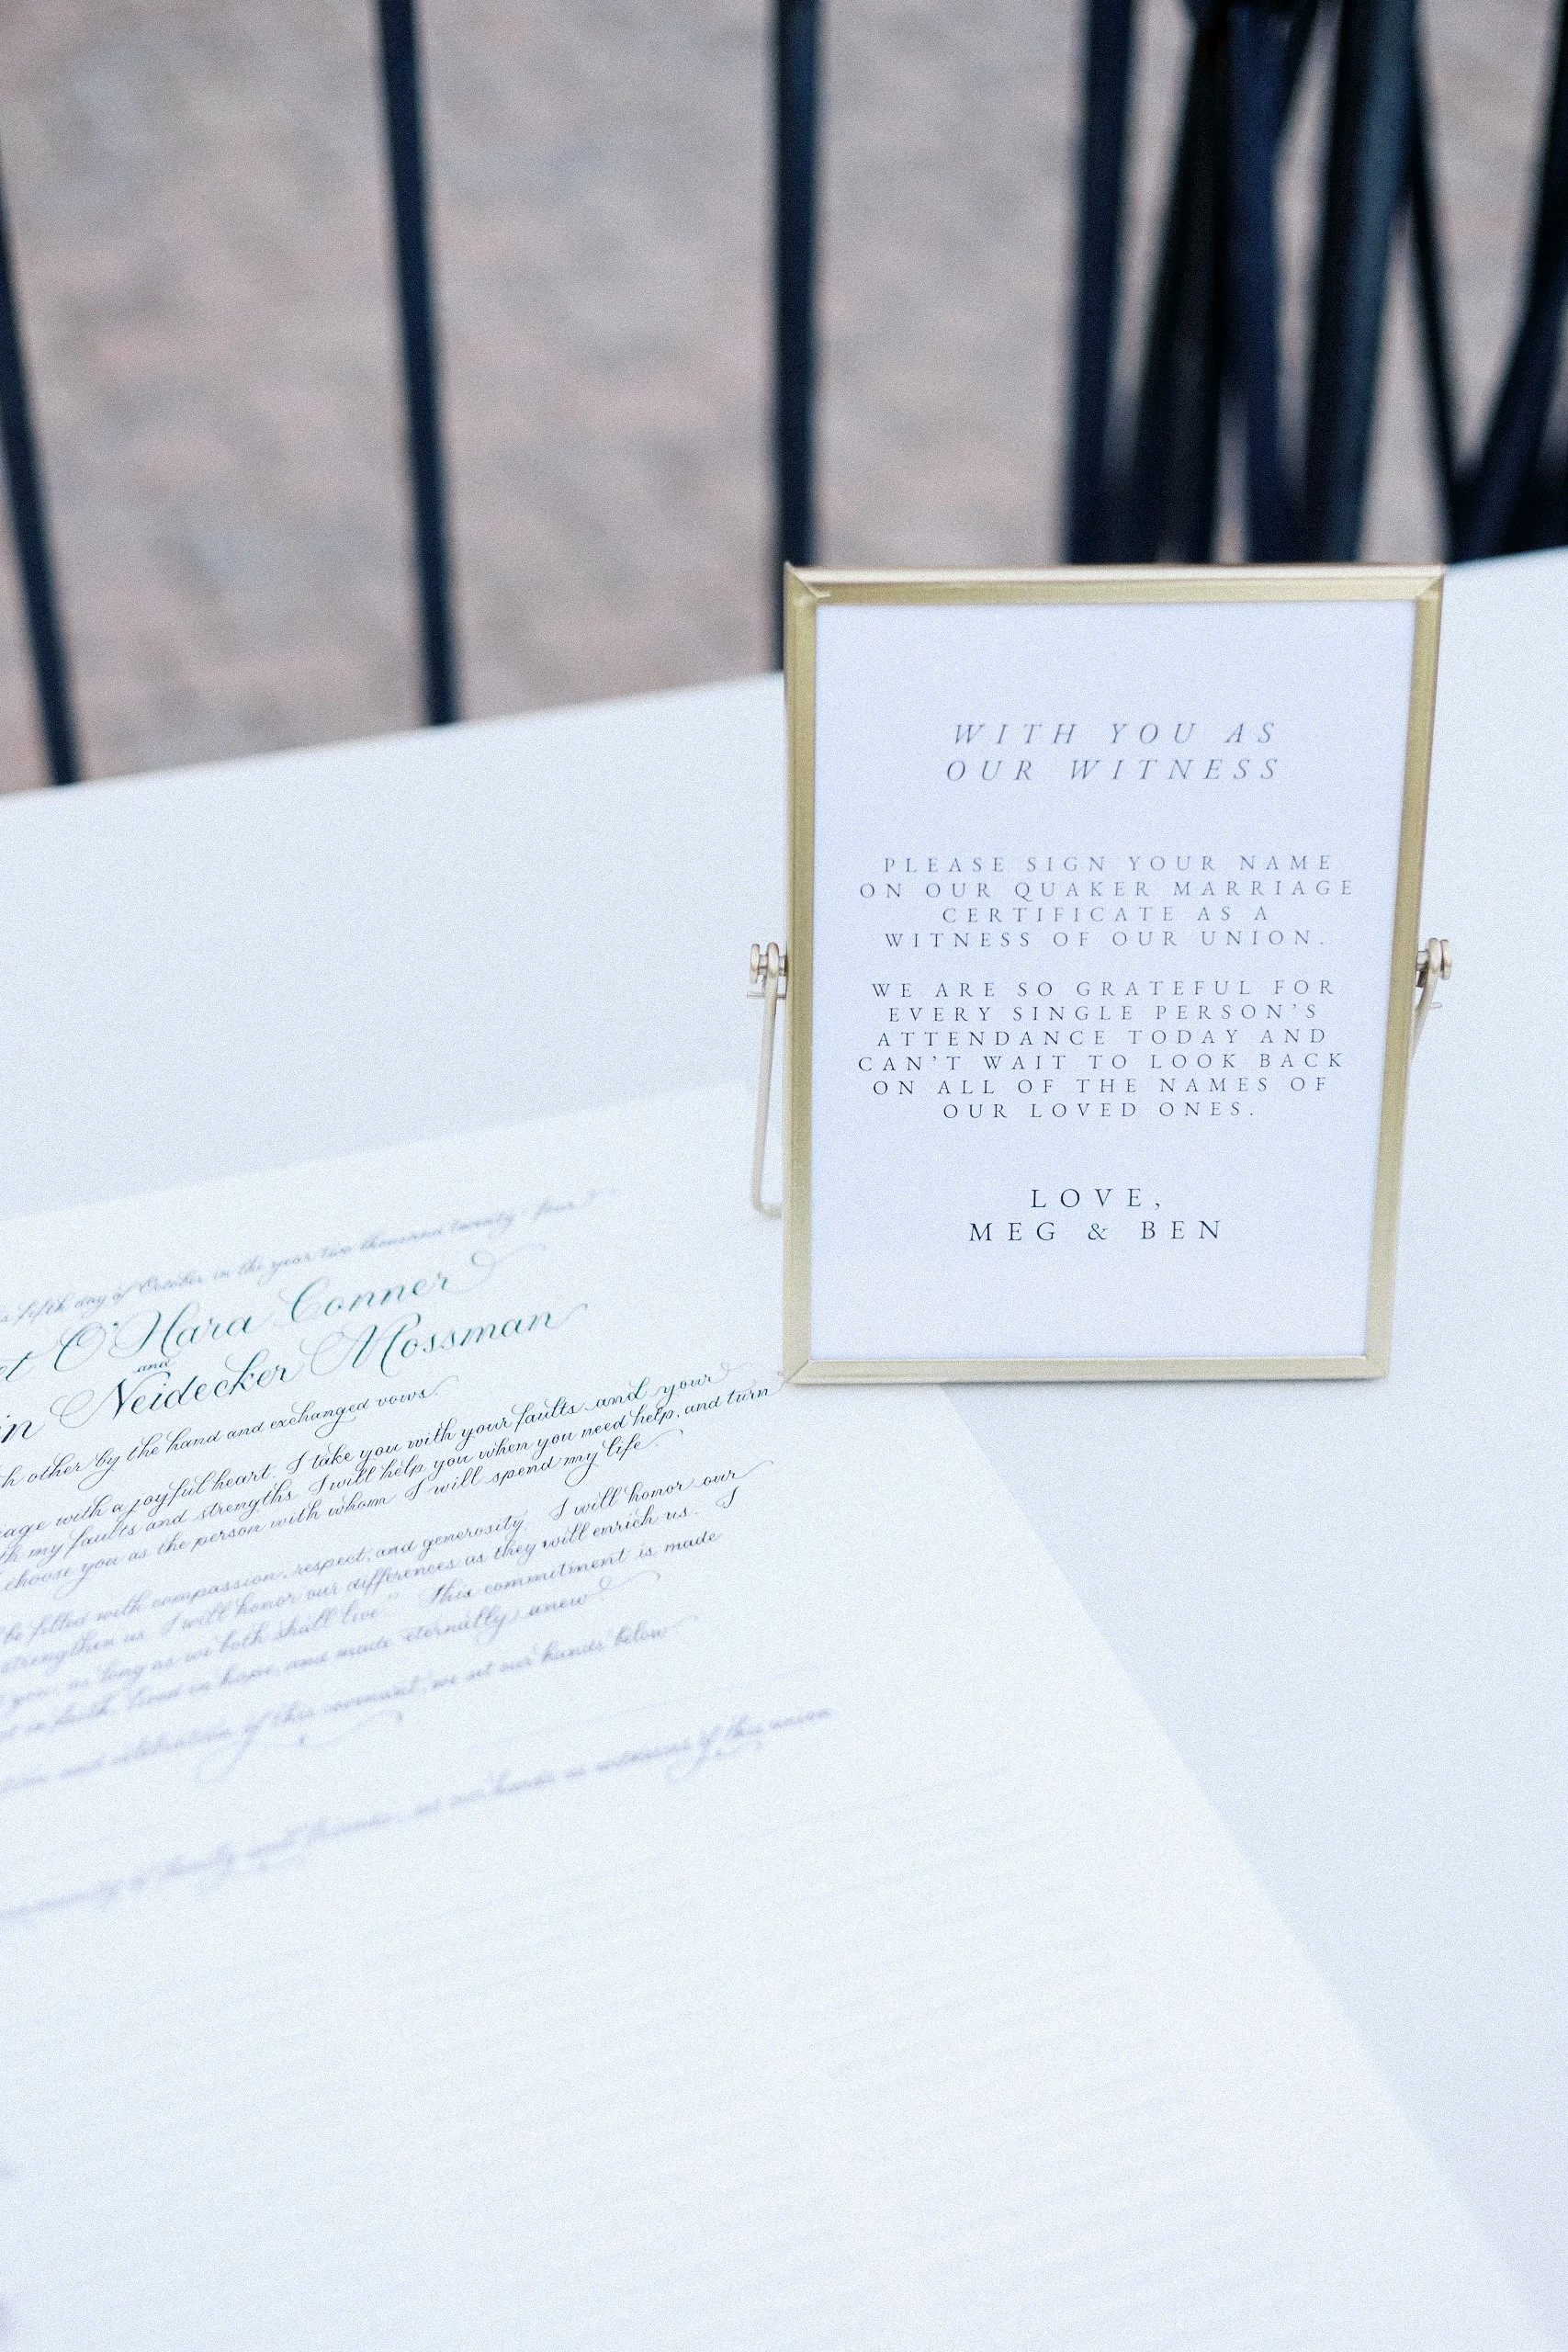 WITH YOU AS
OUR WITNESS
PLEASE SIGN YOUR NAME
ON OUR QUAKER MARRIAGE
CERTIFICATE AS A
WITNESS OF OUR UNION.
WE ARE SO GRATEFUL FOR
EVERY SINGLE PERSON'S
ATTENDANCE TODAY AND
CAN'T WAIT TO LOOK BACK
ON ALL OF THE NAMES OF
OUR LOVED ONES.
LOVE,
MEG & BEN
fifth day of October in the year two thousand twenty-four
O'Hara Conner
and
Neidecker Mossman
other by the hand and exchanged vows.
with a joyful heart. I take you with your faults and your
my faults and strengths. I will help you when you need help, and turn
choose you as the person with whom I will spend my life.
be filled with compassion, respect, and generosity. I will honor our
strengthen us. I will honor our differences as they will enrich us. I
you, as long as we both shall live." This commitment is made
in faith, lived in hope, and made eternally anew.
and celebration of this covenant, we set our hands below
of family and friends, set our hands as witnesses of this union